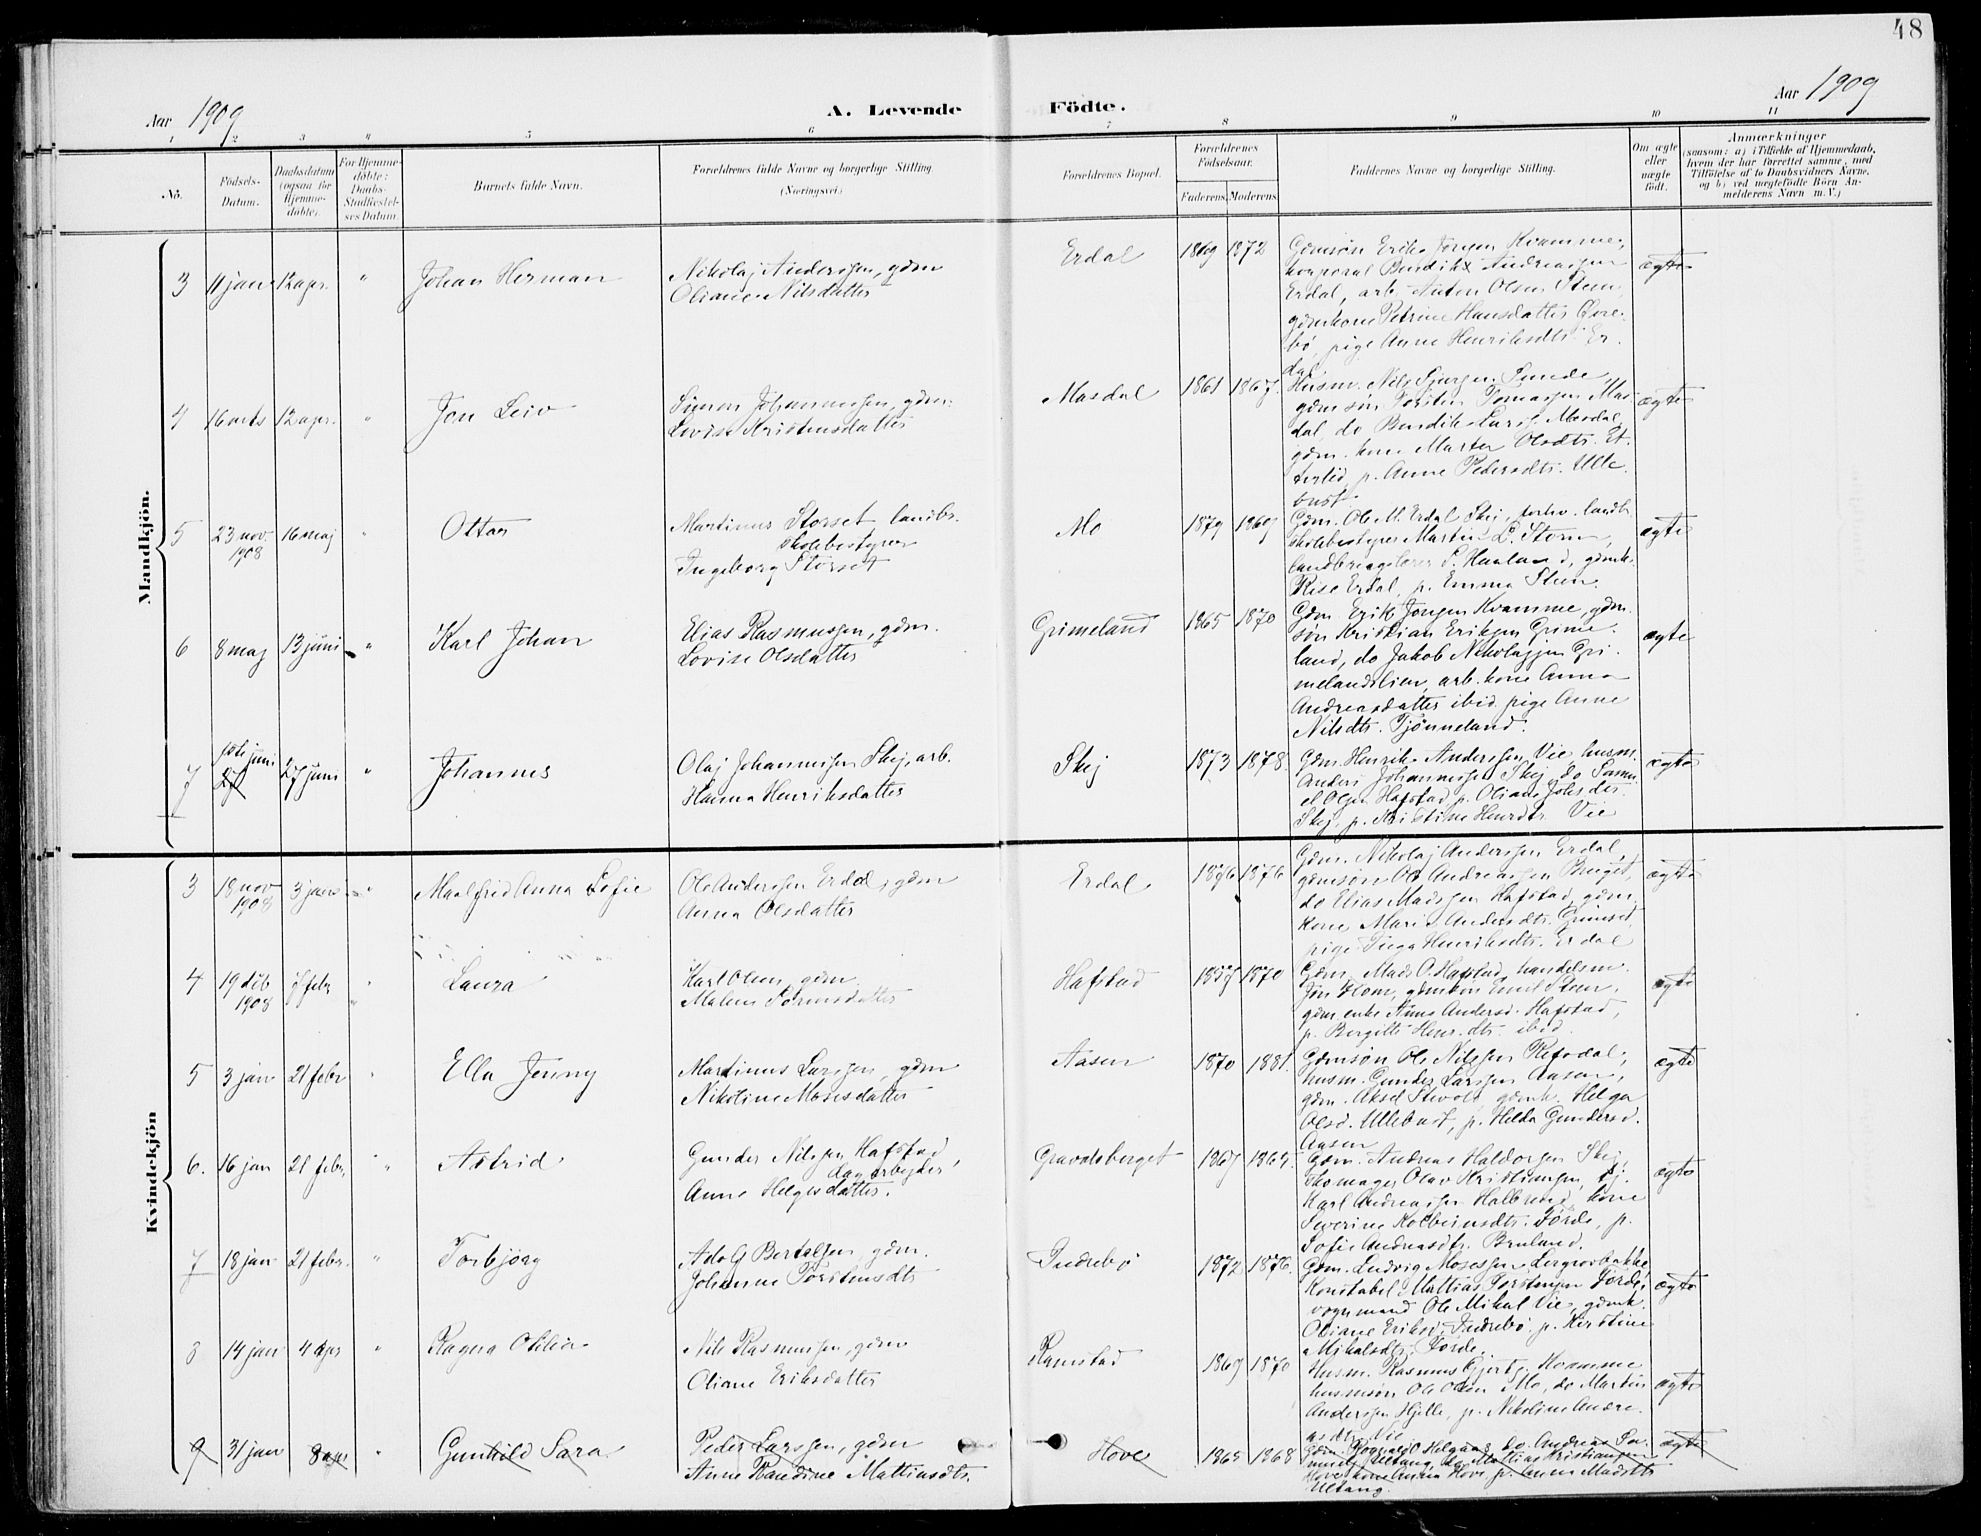 48
Aar 1909
A. Levende Födte.
Aar 1909
1 2 3 4 5 6 7 8 9 10 11
No.
Födsels-Datum.
Daabsdatum (ogsaa for Hjemme-döbte).
For Hjemme-döbte: Daabs-Stadfæstel-ses Datum.
Barnets fulde Navn.
Forældrenes fulde Navne og borgerlige Stilling (Næringsvei.)
Forældrenes Bopæl.
Forældrenes Födselsaar.
Faderens. Moderens
Faddernes Navne og borgerlige Stilling.
Om ægte eller uægte födt.
Anmærkninger
(saasom: a) i Tilfælde af Hjemmedaab,
hvem der har forrettet samme, med
Tilföielse af to Daabsvidners Navne,
og b) ved uægtefödte Börn An-
melderens Navn m. V.)
Mandkjön.
3 11 jan 12 apr. " Johan Herman
Nikolaj Anderssen, gdm
Oliane Nilsdatter
Erdal 1869 1872
Gdmsøn Erik Jørgen Kvamme,
korporal Bendik Andreassen
Erdal, arb. Anton Olsen Steen
gdmkone Petrine Hansdatter Øvre-
bø, pige Anne Henriksdtr. Er-
dal.
ægte
4 16 mts 12 apr. " Jon Leiv
Simon Johannessen, gdm.
Lovise Kristensdatter
Masdal 1861 1867
Husm. Nils Sjursen Sunde,
gdmsøn Torsten Tomassen Mas-
dal, do Bendik Larss. Masdal,
gdm. kone Marta Olsdtr. Et-
terlid, p. Anne Pedersdtr. Ulle-
bust.
ægte
5 23 nov 1908 16 maj " Ottar
Martinus Storset landbr.
skolebestyrer
Ingeborg Storset
Mo 1879 1869
Gdm. Ole M. Erdal Skej, forhv. landb.
skolebestyrer Martin L. Storm,
landbrugslærer S. Haaland, gdmk.
Rise Erdal, p. Emma Steen.
ægte
6 8 maj 13 juni " Karl Johan
Elias Rasmussen, gdm.
Lovise Olsdatter
Grimeland 1865 1870
Gdm. Erik Jørgen Kvamme, gdm.
søn Kristian Eriksen Grime-
land, do Jakob Nikolajsen Gri-
melandslien, arb. kone Anna
Andreasdatter ibid. pige Anne
Nilsdtr. Tjønneland.
ægte
7 juni 27 juni " Johannes
Olaj Johannessen Skej, arb.
Hanna Henriksdatter
Skej 1873 1878.
Gdm. Henrik Anderssen Vie husm.
Anders Johannessen Skej, do Samu-
el Olsen Hafstad, p. Oliane Johs dtr.
Skej, p. Kristine Henrdtr. Vie
ægte
Kvindekjön
3 18 nov 1908 3 jan " Maalfrid Anna Sofie
Ole Anderssen Erdal, gdm
Anna Olsdatter
Erdal 1876 1876
Gdm. Nikolaj Anderssen Erdal,
gdmsøn Ole Andreassen Bruget,
do Elias Madssen Hafstad, gdm.
kone Mari Andersdtr. Grimset,
pige Henriksdtr. Erdal
ægte
4 19 dec 1908 7 febr " Laura
Karl Olsen, gdm
Malene
Hafstad 1857 1870
Gdm. Mads O. Hafstad, handelsm.
Jon Flom, gdmsøn Emil Steen,
gdm. enke Anna Andersd. Hafstad,
p. Bergitte Henr. dtr. ibid.
ægte
5 3 jan 21 febr " Ella Jenny
Martinus Larssen, gdm
Nikoline Mosesdatter
Aasen 1870 1881.
Gdmsøn Ole Nilssen Refsdal,
husm. Gunder Larssen Aasen,
gdm. Aksel Stevold gdmk. Helga
Olsd. Ullebust, p. Hilda Gundersd.
Aasen
ægte
6. 16 jan 21 febr. " Astrid
Gunder Nilssen Hafstad
dagarbejder,
Anne Helgesdatter.
Gravdsberget 1867 1869.
Gdm. Andreas Haldorsen Skej
skomager Olav Kristiansen,
Karl Andreassen Halbrend, kone
Severine Kolbeinsdtr. Førde, p.
Sofie Andreasdtr. Bruland.
ægte
7 18 jan 21 febr. " Torbjørg
Adolf Bertelsen, gdm.
Johanne Torstensdtr
Indrebø 1872 1876.
Gdm. Ludvig Mosessen Lergrovbakke
Konstabel Mattias Torstensen Førde,
vognmand Ole Mikal Vie, gdmk.
Oliane Eriksd. Indrebø, p. Kirstine
Mikalsdtr. Førde.
ægte
8 14 jan 4 apr " Ragna Otilia
Nils Rasmussen, gdm
Oliane Eriksdatter
Ramstad 1867 1870
Husm. Rasmus Gjerts. Kvamme
husmsøn Ole Olsen Mo, do Martin
Anderssen Hjelle, p. Nikoline Andre-
asdtr. Vie
ægte
9 31 jan 8 apr " Gunhild Sara
Peder Larssen, gdm
Anne Randine Mattiasdtr.
Hove 1865 1868
Gdm. Helgaas, do. Andreas Sa-
muels. Ultang, do Mattias Kristiansen
Hove kone Anna Hove, p. Anna Madsdtr
Ultang.
ægte